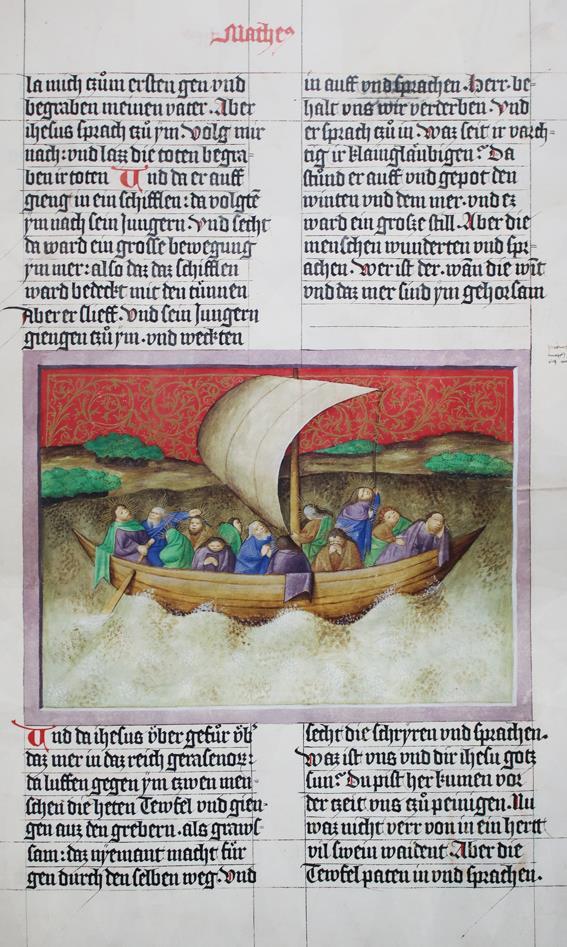 Mathe⁹
la mich czům ersten gen vnd
begraben meinen vater. Aber
ihesus sprach czů ym. Volg mir
nach: vnd laz die toten begra-
ben ir toten Und da er auff
gieng in ein schifflen: da volgtē
ym nach sein Jungern. Vnd secht
da ward ein grosse bewegung
ym mer: also daz daz schifflen
ward bedeckt mit den tünnen
Aber er slieff. Vnd sein Jungern
giengen czů ym. vnd weckten
in auff vnd sprachen. Herr. be-
halt vns wir verderben. Vnd
er sprach czů in Waz seit ir vorch-
tig ir klainglåubigen? Da
stůnd er auff vnd gepot den
winten vnd dem mer. vnd ez
ward ein grosze still. Aber die
menschen wunderten vnd spr-
achen. Wer ist der. wān die wīt
vnd daz mer sind ym gehorsam
Und da ihesus vber gefůr vb
daz mer in daz reich gerasenor:
da luffen gegen ym czwen men-
schen die heten Tewfel vnd gien-
gen auz den grebern. als graws-
sam: daz nyemant macht für
gen durch den selben weg. Vnd
secht die schryren vnd sprachen.
Waz ist vns vnd dir ihesu gotz
sun? Du pist her kumen vor
der czeit vns czů peinigen. Nu
waz nicht verr von in ein hertt
vil swein waident. Aber die
Tewfel paten in vnd sprachen.